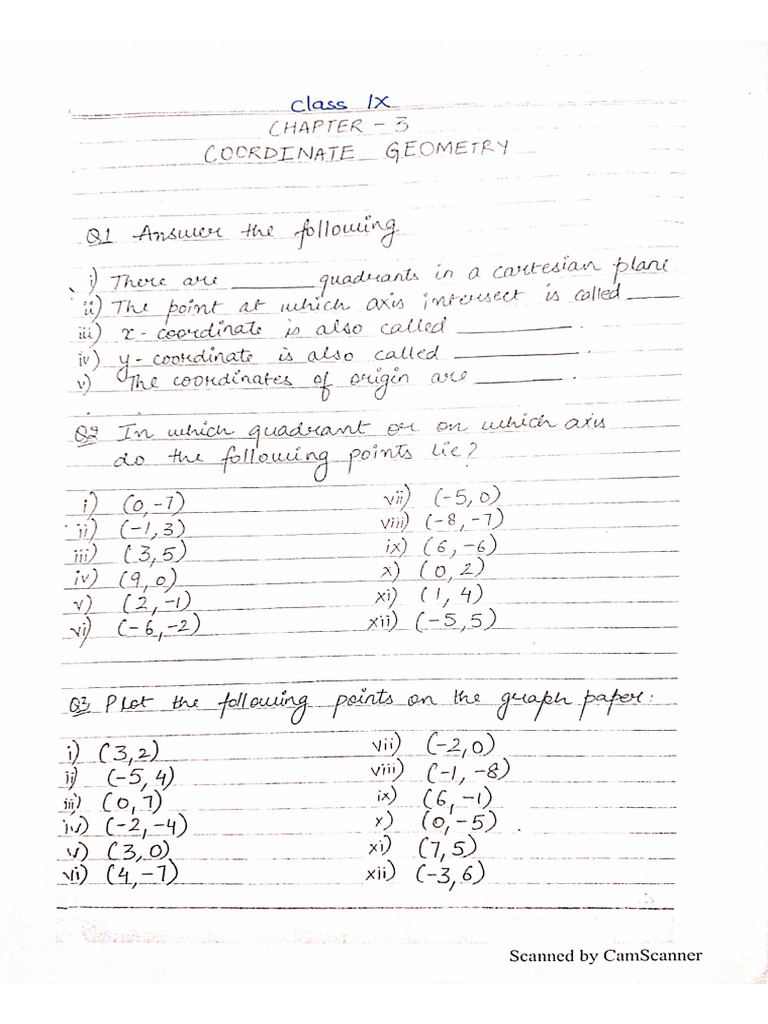 Class IX
CHAPTER - 3
COORDINATE GEOMETRY
Q1 Answer the following
i) There are ________ quadrants in a cartesian plane
ii) The point at which axis intersect is called ____
iii) x-coordinate is also called __________.
iv) y-coordinate is also called __________.
v) The coordinates of origin are ________.
Q2 In which quadrant or on which axis
do the following points lie?
i) (0,-7)
ii) (-1,3)
iii) (3,5)
iv) (9,0)
v) (2,-1)
vi) (-6,-2)
vii) (-5,0)
viii) (-8,-7)
ix) (6,-6)
x) (0,2)
xi) (1,4)
xii) (-5,5)
Q3 Plot the following points on the graph paper:
i) (3,2)
ii) (-5,4)
iii) (0,7)
iv) (-2,-4)
v) (3,0)
vi) (4,-7)
vii) (-2,0)
viii) (-1,-8)
ix) (6,-1)
x) (0,-5)
xi) (7,5)
xii) (-3,6)
Scanned by CamScanner